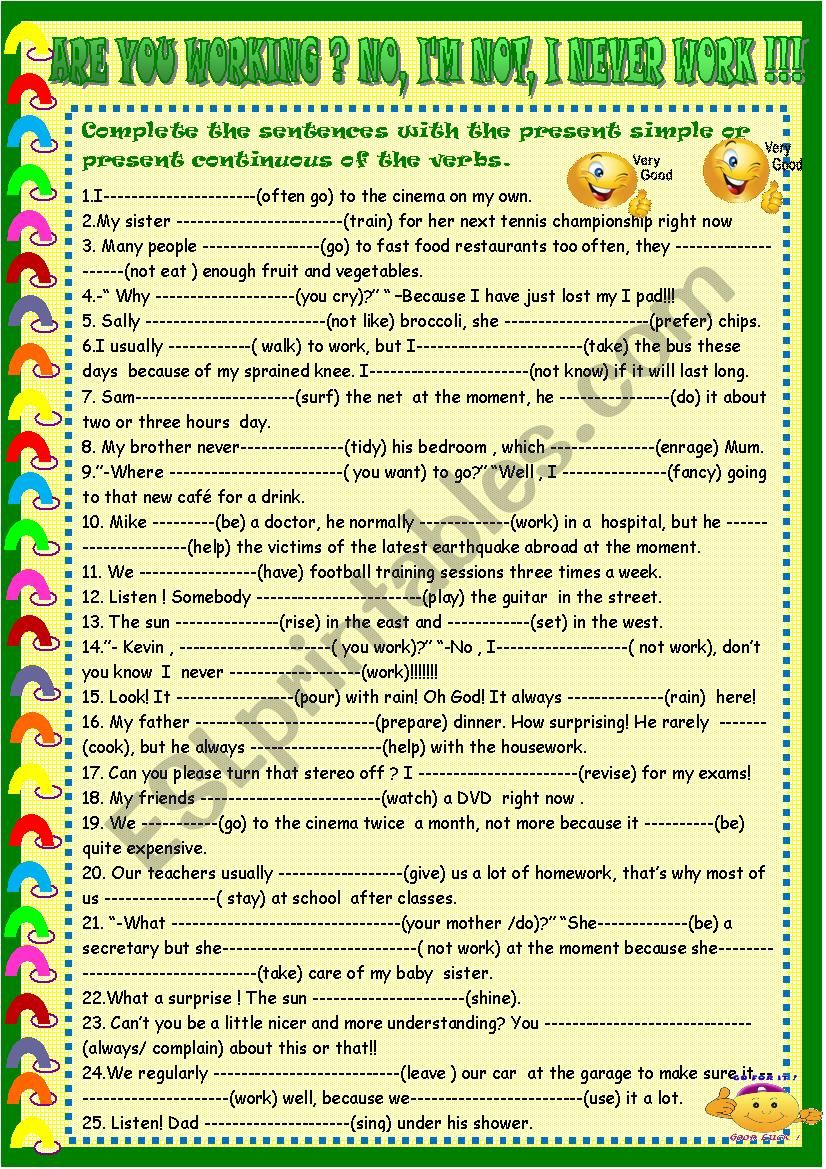 ARE YOU WORKING ? NO, I'M NOT, I NEVER WORK !!!
Complete the sentences with the present simple or
present continuous of the verbs.
Very
Good
Very
Good
1.I----------------------(often go) to the cinema on my own.
2.My sister ------------------------(train) for her next tennis championship right now
3. Many people -----------------(go) to fast food restaurants too often, they --------------
------(not eat ) enough fruit and vegetables.
4.-“ Why --------------------(you cry)?” “ –Because I have just lost my I pad!!!
5. Sally --------------------------(not like) broccoli, she ---------------------(prefer) chips.
6.I usually ------------( walk) to work, but I------------------------(take) the bus these
days  because of my sprained knee. I-----------------------(not know) if it will last long.
7. Sam-----------------------(surf) the net  at the moment, he ----------------(do) it about
two or three hours  day.
8. My brother never---------------(tidy) his bedroom , which ---------------(enrage) Mum.
9.”-Where -------------------------( you want) to go?” “Well , I ---------------(fancy) going
to that new café for a drink.
10. Mike ---------(be) a doctor, he normally -------------(work) in a  hospital, but he ------
---------------(help) the victims of the latest earthquake abroad at the moment.
11. We -----------------(have) football training sessions three times a week.
12. Listen ! Somebody ------------------------(play) the guitar  in the street.
13. The sun ---------------(rise) in the east and ------------(set) in the west.
14.”- Kevin , ----------------------( you work)?” “-No , I-------------------( not work), don’t
you know  I  never -------------------(work)!!!!!!!
15. Look! It -----------------(pour) with rain! Oh God! It always --------------(rain)  here!
16. My father --------------------------(prepare) dinner. How surprising! He rarely  -------
(cook), but he always -------------------(help) with the housework.
17. Can you please turn that stereo off ? I -----------------------(revise) for my exams!
18. My friends --------------------------(watch) a DVD  right now .
19. We -----------(go) to the cinema twice  a month, not more because it ----------(be)
quite expensive.
20. Our teachers usually ------------------(give) us a lot of homework, that’s why most of
us ----------------( stay) at school  after classes.
21. “-What ---------------------------------(your mother /do)?” “She-------------(be) a
secretary but she----------------------------( not work) at the moment because she--------
-------------------------(take) care of my baby  sister.
22.What a surprise ! The sun ----------------------(shine).
23. Can’t you be a little nicer and more understanding? You ------------------------------
(always/ complain) about this or that!!
24.We regularly ---------------------------(leave ) our car  at the garage to make sure it
---------------------(work) well, because we-------------------------(use) it a lot.
25. Listen! Dad ---------------------(sing) under his shower.
GO FOR IT !
Good Luck !
ESLprintables.com